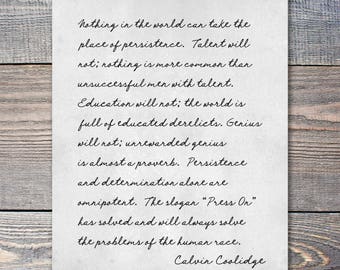 Nothing in the world can take the
place of persistence. Talent will
not; nothing is more common than
unsuccessful men with talent.
Education will not; the world is
full of educated derelicts. Genius
will not; unrewarded genius
is almost a proverb. Persistence
and determination alone are
omnipotent. The slogan "Press On"
has solved and will always solve
the problems of the human race.
Calvin Coolidge